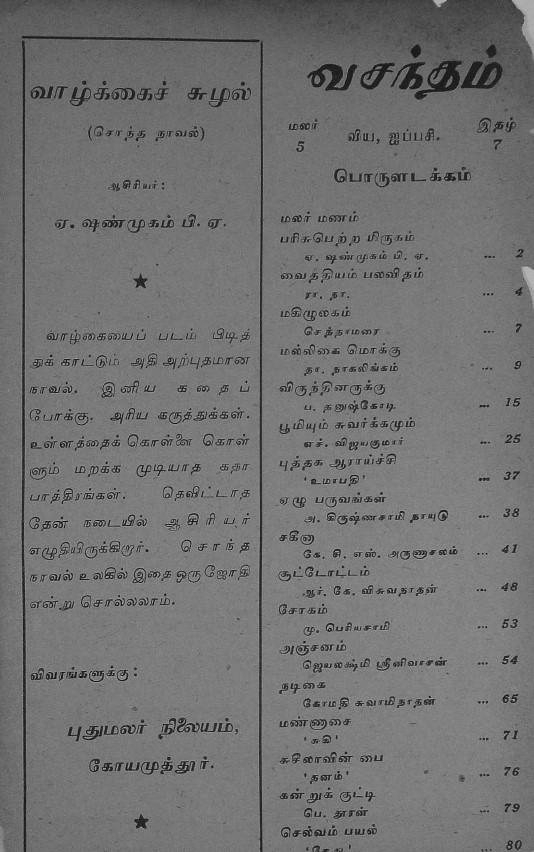 வாழ்க்கைச் சுழல்
(சொந்த நாவல்)
ஆசிரியர்:
ஏ. ஷண்முகம் பி. ஏ.
வாழ்கையைப் படம் பிடித்
துக் காட்டும் அதி அற்புதமான
நாவல். இனிய கதைப்
போக்கு. அரிய கருத்துக்கள்.
உள்ளத்தைக் கொள்ளை கொள்
ளும் மறக்க முடியாத கதா
பாத்திரங்கள். தெவிட்டாத
தேன் நடையில் ஆசிரியர்
எழுதியிருக்கிறார். சொந்த
நாவல் உலகில் இதை ஒருஜோதி
என்று சொல்லலாம்.
விவரங்களுக்கு:
புதுமலர் நிலையம்,
கோயமுத்தூர்.
வசந்தம்
மலர் 5 விய, ஐப்பசி. இதழ் 7
பொருளடக்கம்
மலர் மணம்
பரிசுபெற்ற மிருகம்
ஏ. ஷண்முகம் பி. ஏ. ... 2
வைத்தியம் பலவிதம்
ரா. நா. ... 4
மகிழுலகம்
செந்தாமரை ... 7
மல்லிகை மொக்கு
நா. நாகலிங்கம் ... 9
விருந்தினருக்கு
ப. தனுஷ்கோடி ... 15
பூமியும் சுவர்க்கமும்
எச். விஜயகுமார் ... 25
புத்தக ஆராய்ச்சி
'உமாபதி' ... 37
ஏழு பருவங்கள்
அ. கிருஷ்ணசாமி நாயுடு ... 38
சகீனா
கே. சி. எஸ். அருணாசலம் ... 41
சூட்டோட்டம்
ஆர். கே. விசுவநாதன் ... 48
சோகம்
மு. பெரியசாமி ... 53
அஞ்சனம்
ஜெயலக்ஷ்மி ஸ்ரீனிவாசன் ... 54
நடிகை
கோமதி சுவாமிநாதன் ... 65
மண்ணாசை
'சுகி' ... 71
சுசீலாவின் பை
'தனம்' ... 76
கன்றுக் குட்டி
பெ. தூரன் ... 79
செல்வம் பயல்
... 80